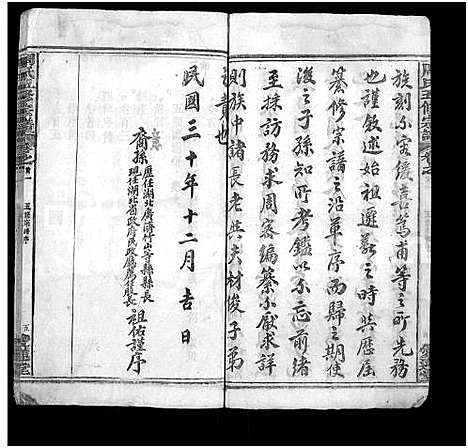 族刻不容緩喜篤甫等之所先務
也謹敘述始祖遷蘄之時與歷屆
纂修宗譜之沿革序而歸之期使
後之子孫知所考鑑以不忘前緒
至採訪務求周密編纂不厭求詳
則族中諸長老與夫材俊子弟
責也
民國三十年十二月吉日
裔孫 歷任湖北廣濟竹山等縣縣長
現任湖北省政府民政廳 股長 祖佑謹序
五修宗譜
五